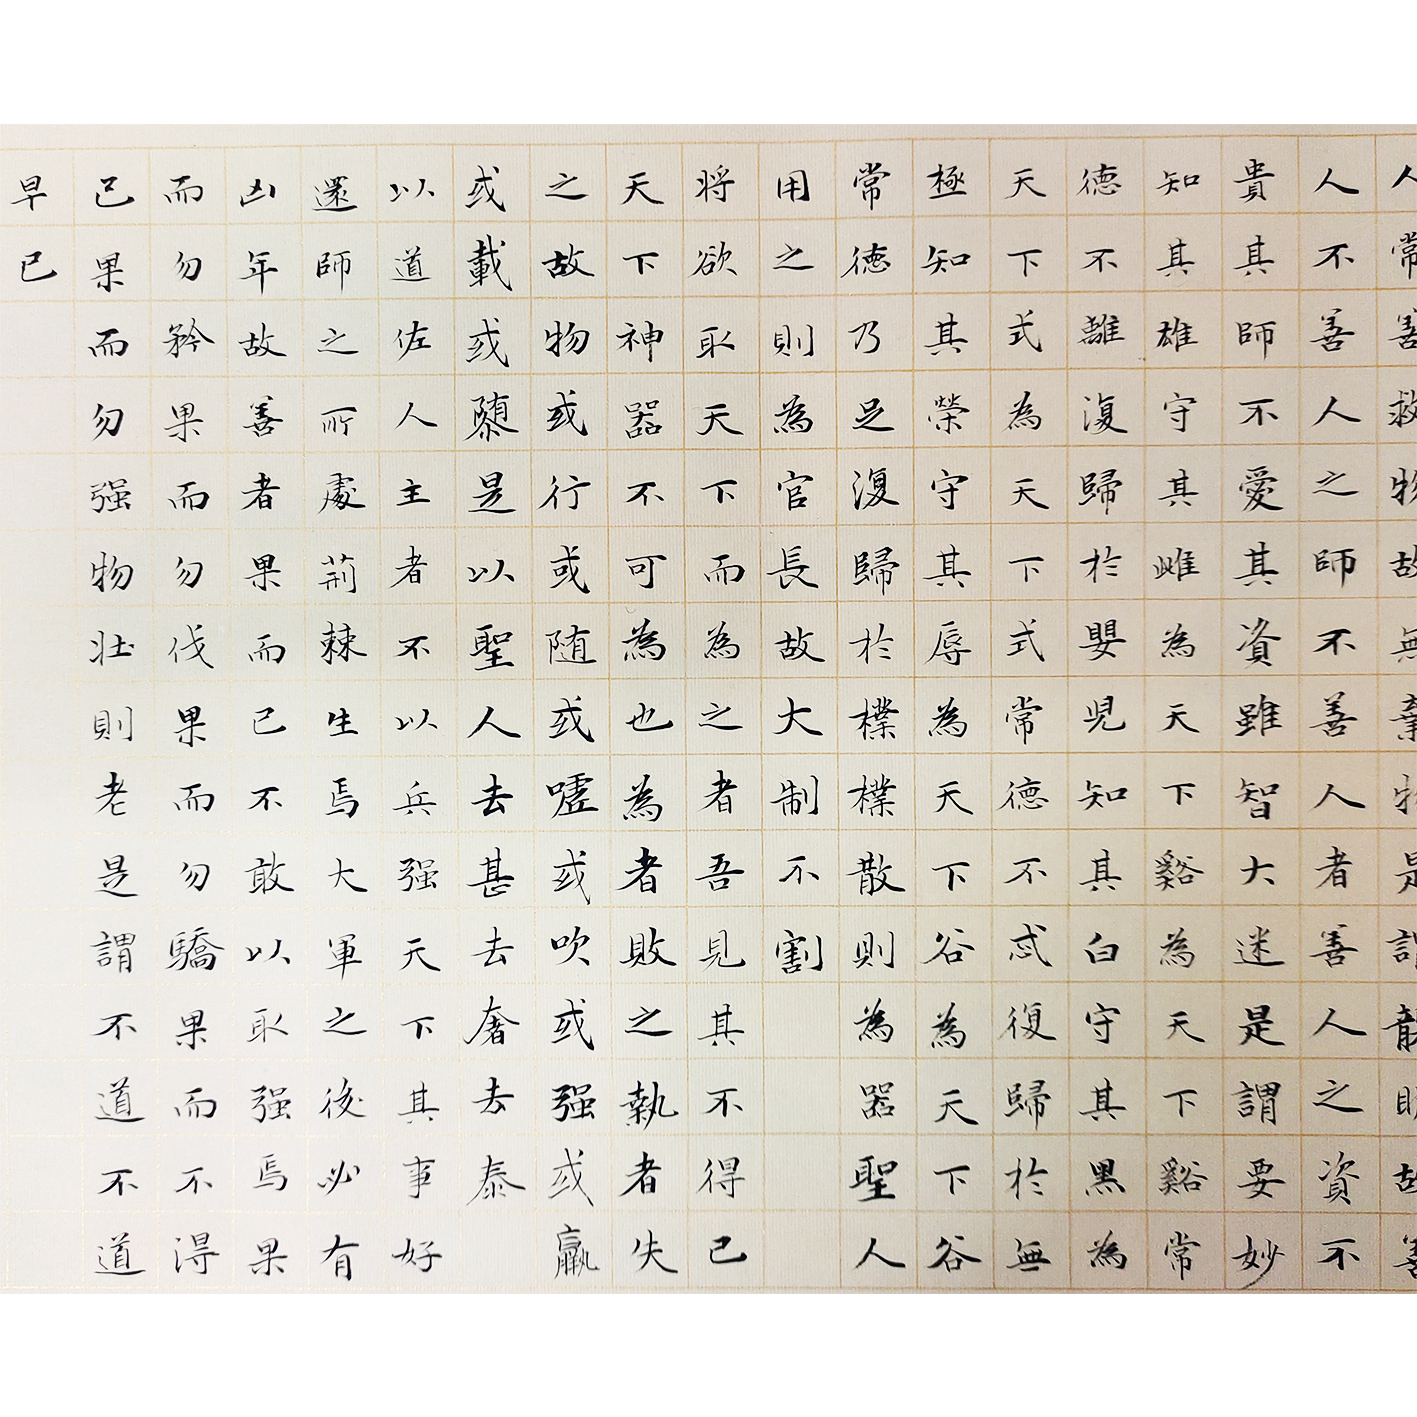 人常善救物故無棄物是謂襲明故善
人不善人之師不善人者善人之資不
貴其師不愛其資雖智大迷是謂要妙
知其雄守其雌為天下谿為天下谿常
德不離復歸於嬰兒知其白守其黑為
天下式為天下式常德不忒復歸於無
極知其榮守其辱為天下谷為天下谷
常德乃足復歸於樸樸散則為器聖人
用之則為官長故大制不割
將欲取天下而為之者吾見其不得已
天下神器不可為也為者敗之執者失
之故物或行或随或嘘或吹或强或羸
或載或隳是以聖人去甚去奢去泰
以道佐人主者不以兵强天下其事好
還師之所處荊棘生焉大軍之後必有
凶年故善者果而已不敢以取强焉果
而勿矜果而勿伐果而勿驕果而不得
已果而勿强物壯則老是謂不道不道
早已